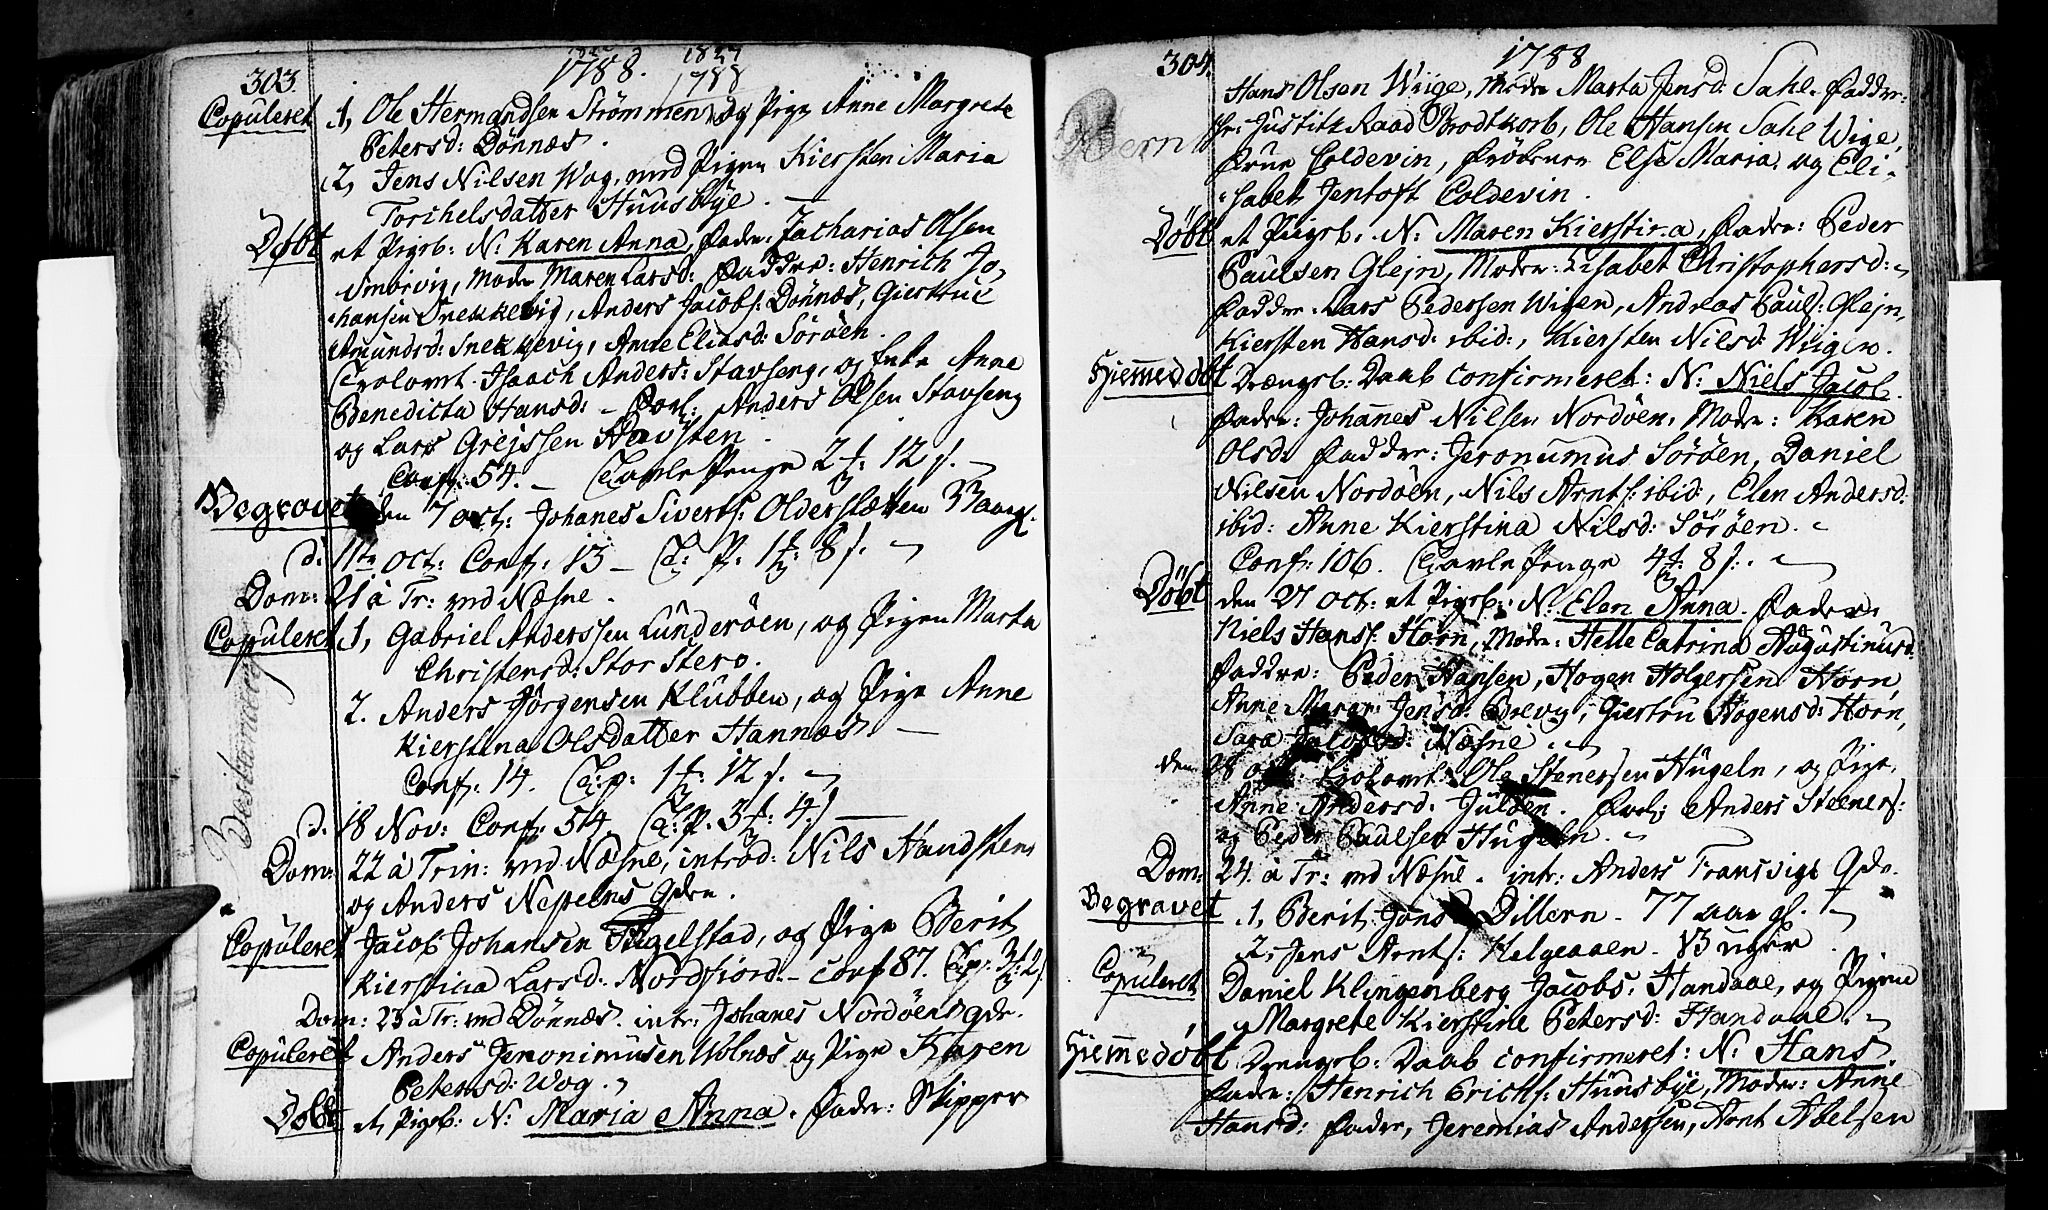 303.
1788.
1788
Copuleret 1, Ole Hermandsen Strömmen, og Pige Anne Margrete
Petersd: Dönnæs.
2, Jens Nilsen Wog, med Pigen Kiersten Maria
Torchelsdatter Huusbÿe.
Döbt et Pigeb: N: Karen Anna, Fader: Zacharias Olsen
Smörvig, Moder Maren Larsd: Faddre: Henrich Jo-
hansen Snekkevig, Anders Jacobs: Dönnæs, Giertrue
Amundsd: Snekkevig, Anne Eliasd: Söröen.
Trolovet Isaach Anders: Stavseng, og Enke Anne
Benedicta Hansd: - Forl: Anders Olsen Stavseng
og Lars Grejssen
Conf: 54. - Tavle Penge 2 12 s.
Begravet den 7 oct: Johanes Siverts: Olderstætten 3 aar gl.
d. 11te oct: Conf: 13 - T: P. 1 8 s.
Dom: 21 à Tr: ved Næsne.
Copuleret 1, Gabriel Anderssen Lunderöen, og Pigen Marta
Christensd: Stor Stero.
2. Anders Jörgensen Klubben, og Pige Anne
Kierstina Olsdatter Hannæs. -
Conf: 14. T: p: 1 12 s.
d. 18 Nov: Conf: 54. T: P. 3 4 s
Dom: 22 à Trin: ved Næsne, introd: Nils Handstens
og Anders Nepelns Qdre.
Copuleret Jacob Johansen Tegelstad, og Pige Berit
Kierstina Larsd: Nordfiord - Conf 87. T: p. 3: 2 s
Dom: 23 à Tr: ved Dönnæs. intr: Johanes Nordöens qdr.
Copuleret Anders Jeronimusen Wolnæs og Pige Karen
Petersd: Wog.
Döbt et Pigeb: N: Maria Anna. Fader: Skipper
304.
1788
Hans Olsen Wiige, Moder Marta Jensd: Sahl. Faddre:
Hr: Justitz Raad Brodtkorb, Ole Hansen Sahl Wige,
Frue Coldevin, Frökener Else Maria og Eli-
sabet Jentoft Coldevin.
Döbt et Pigeb: N: Maren Kierstina, Fader: Peder
Paulsen Glejn, Moder: Lisabet Christophersd:
Faddre: Lars Pedersen Wigen, Andreas Pauls: Glejn,
Kiersten Hansd: ibid:, Kiersten Nilsd: Wiigen.
Hiemmedöbt Drængeb: Daab confirmeret: N: Niels Jacob.
Fader: Johannes Nilsen Nordöen, Moder: Karen
Olsd: Faddre: Jeronumus Söröen, Daniel
Nilsen Nordöen, Nils Arnts: ibid:, Elen Andersd:
ibid: Anne Kierstina Nilsd: Söröen.
Conf: 106. Tavle Penge 4 8 s.
Döbt den 27 Oct: et Pigeb: N: Elen Anna. Fader
Niels Hans: Horn, Moder: Helle Catrina Augustinusd:
Faddre: Peder Hansen, Hogen Holgersen Horn,
Anne Marg: Jensd: Brevig, Giertru Hogensd: Horn,
Sara Næsne.
den 28 Trolovet: Ole Stenersen Hugeln, og Pige
Anne Andersd: Julden. Forl: Anders Steners:
og Peder Paulsen Hugeln.
Dom: 24. à Tr: ved Næsne. intr: Anders Transvigs Qdr.
Begravet 1, Berit Jons Dillern - 77 aar gl.
2, Jens Arnts: Helgeaaen - 13 uger
Copuleret Daniel Klingenberg Jacobs: Handaae, og Pigen
Margrete Kierstine Petersd: Handaae.
Hiemmedöbt Drengeb: Daab confirmeret: N: Hans.
Fader: Henrich Erichs: Huusbÿe, Moder: Anne
Hansd: Fadre, Jeremias Andersen, Arnt Abelsen